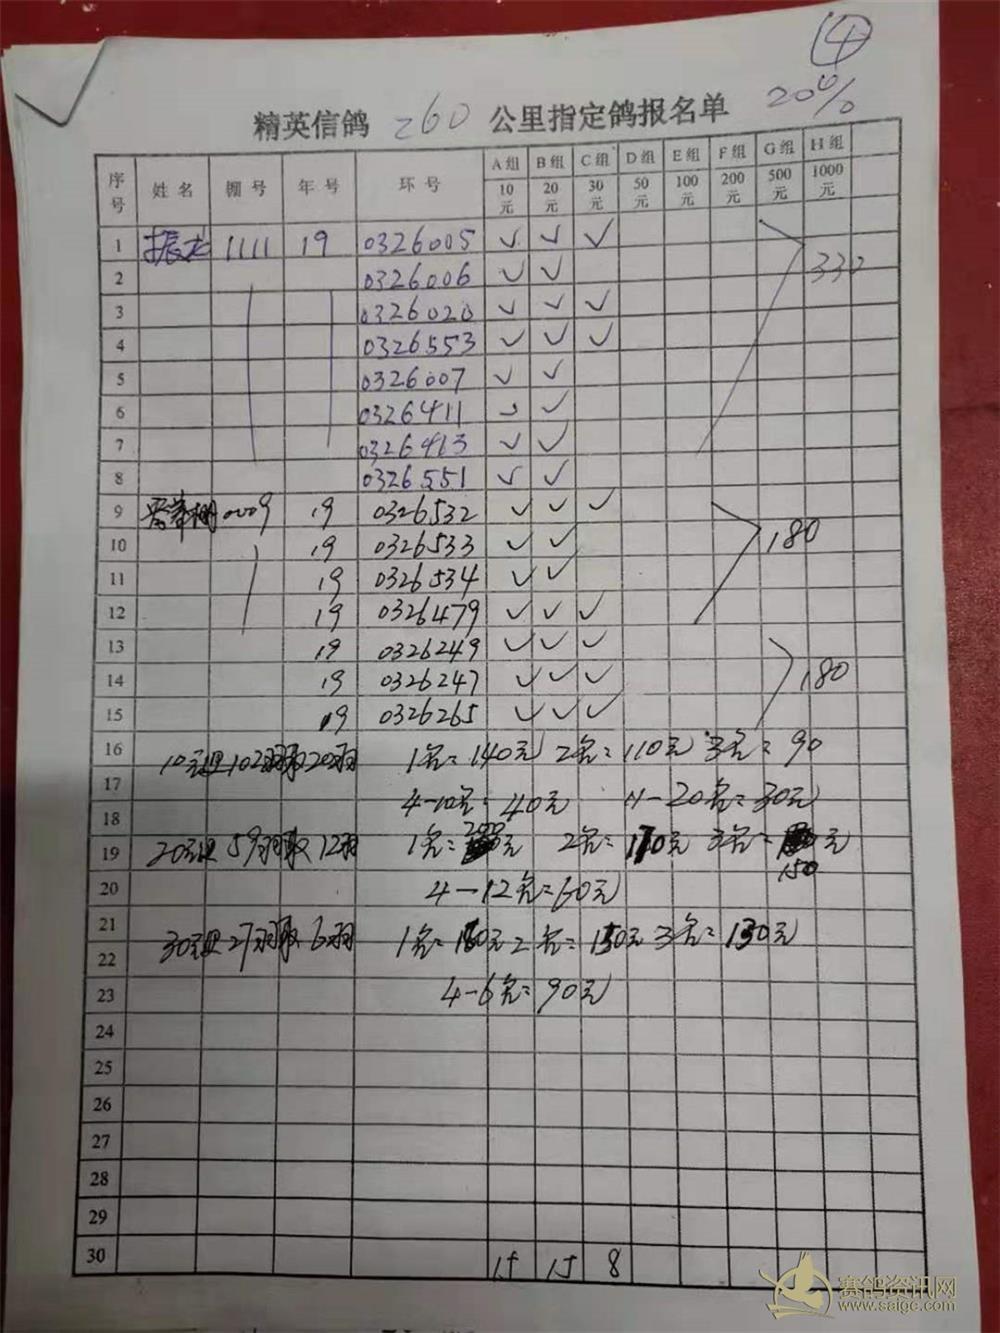 ④
20%
精英信鸽 260 公里指定鸽报名单
序号 姓名 棚号 年号 环号 A组 10元 B组 20元 C组 30元 D组 50元 E组 100元 F组 200元 G组 500元 H组 1000元
1 振龙 1111 19 0326005 ✓ ✓ ✓
2 0326006 ✓ ✓ 330
3 0326020 ✓ ✓ ✓
4 0326553 ✓ ✓ ✓
5 0326007 ✓ ✓
6 0326411 ✓ ✓
7 0326413 ✓ ✓
8 0326551 ✓ ✓
9 0009 19 0326532 ✓ ✓ ✓
10 19 0326533 ✓ ✓ 180
11 19 0326534 ✓ ✓
12 19 0326479 ✓ ✓ ✓
13 19 0326249 ✓ ✓ ✓
14 19 0326247 ✓ ✓ ✓ 180
15 19 0326265 ✓ ✓ ✓
16 10元组102羽取20羽 1名=140元 2名=110元 3名=90
17 4-10名=40元 11-20名=30元
18
19 20元组59羽取12羽 1名=200元 2名=170元 3名=150元
20 4-12名=60元
21
22 30元组27羽取6羽 1名=160元 2名=150元 3名=130元
23 4-6名=90元
24
25
26
27
28
29
30 15 15 8
赛鸽资讯网
www.saigc.com